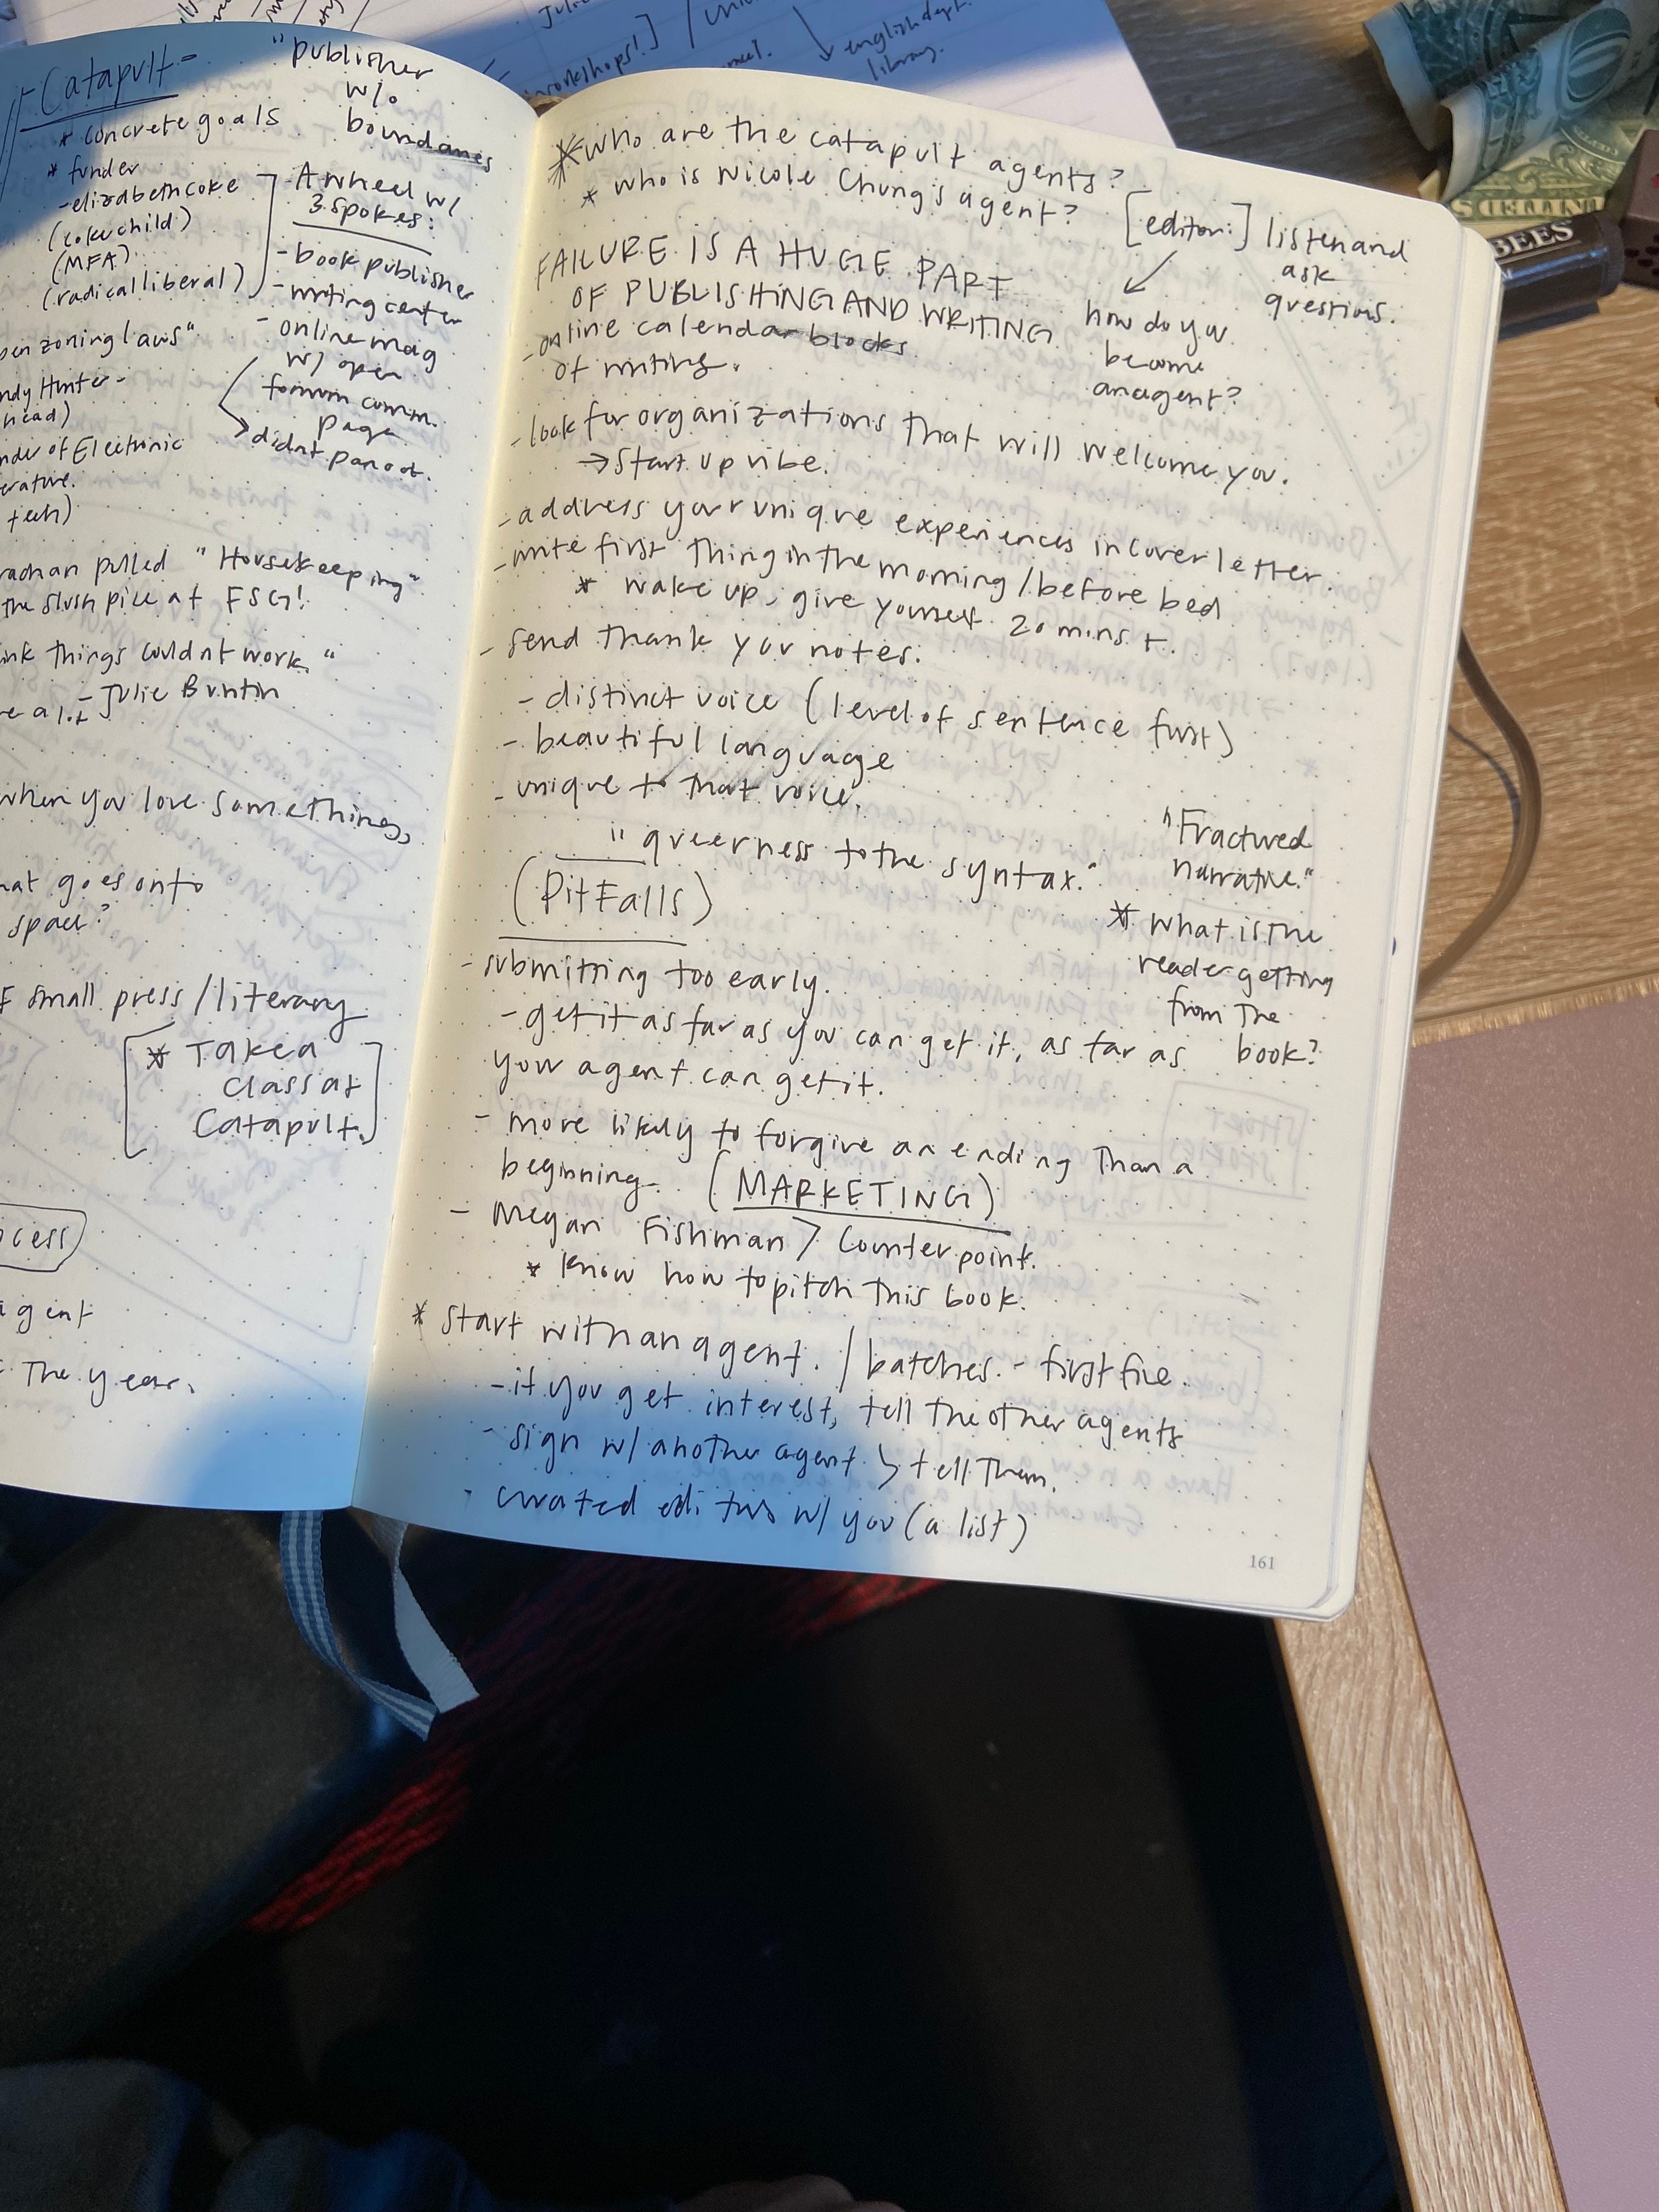 Catapult-
"publisher
w/o
boundaries
* concrete goals
* funder
- elizabeth coke
(coke child)
(MFA)
(radical liberal)
A wheel w/
3 spokes:
- book publisher
- writing center
- online mag
w/ open
forum comm.
page
didnt pan out.
zoning laws"
ndy Hunter -
head)
nder of Electronic
erature.
tech)
pulled "Housekeeping"
the slush pile at FSG!
ink things couldnt work."
- Julie Buntin
re a lot
when you love something,
hat goes onto
space?
F small press/literary
[* Take a
class at
Catapult.]
ocess
agent
The year.
* who are the catapult agents?
* who is Nicole Chung's agent?
[editor:] listen and
ask
questions.
how do you
become
an agent?
FAILURE IS A HUGE PART
OF PUBLISHING AND WRITING
- online calendar blocks
of writing.
- look for organizations that will welcome you.
→ Start up vibe.
- address your unique experiences in cover letter.
- write first thing in the morning/before bed
* wake up, give yourself 20 mins t.
- send thank you notes.
- distinct voice (level of sentence first)
- beautiful language
- unique to that voice.
"queerness to the syntax."
"Fractured
narrative."
* what is the
reader getting
from The
book?
(PitFalls)
- submitting too early.
- get it as far as you can get it, as far as
your agent can get it.
- more likely to forgive an ending Than a
beginning. (MARKETING)
- Megan Fishman > Counterpoint.
* Know how to pitch This book.
* start with an agent. / batches. - first five.
- if you get interest, tell the other agents
- sign w/ another agent > tell Them.
- curated editors w/ you (a list)
161
workshops!]
english dept.
library.
BEES